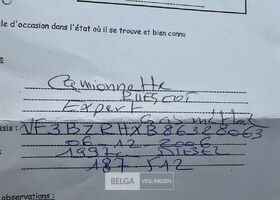 le d'occasion dans l'état où il se trouve et bien connu
Camionnette
PUEGOT
Expert
Gris mettal
ssis : VF3BZRHXB86328063
06 - 12 - 2006
1997 DIESEL
187 512
BELGA VEILINGEN
observations :